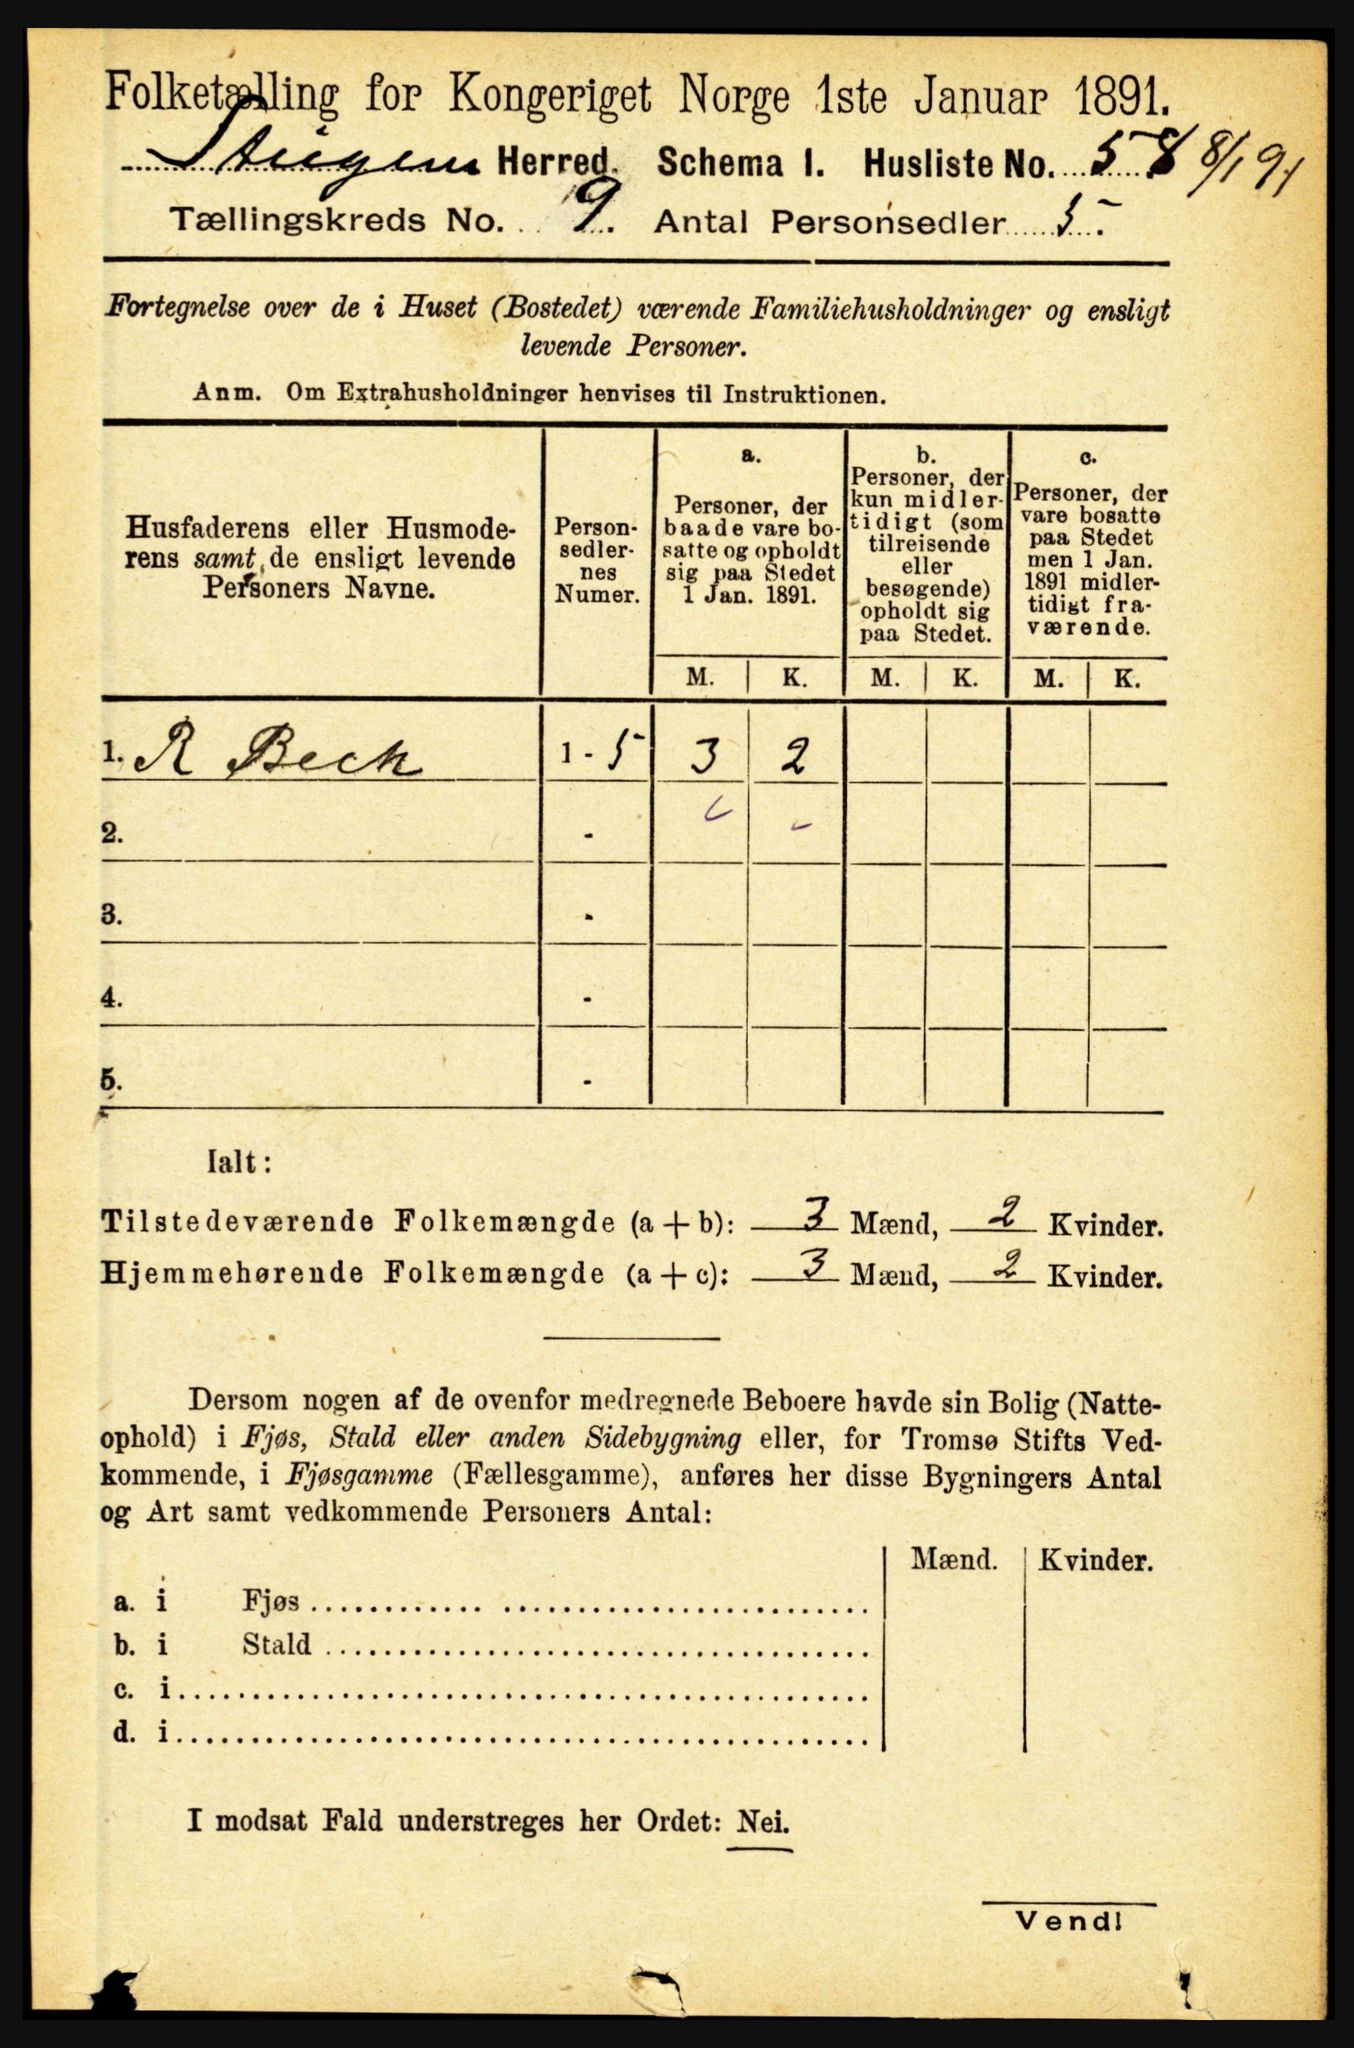 Folketælling for Kongeriget Norge 1ste Januar 1891.
Steigen Herred. Schema I. Husliste No. 58 8/1 91
Tællingskreds No. 9. Antal Personsedler 5.
Fortegnelse over de i Huset (Bostedet) værende Familiehusholdninger og ensligt
levende Personer.
Anm. Om Extrahusholdninger henvises til Instruktionen.
Husfaderens eller Husmode-
rens samt de ensligt levende
Personers Navne.
Person-
sedler-
nes
Numer.
a.
Personer, der
baade vare bo-
satte og opholdt
sig paa Stedet
1 Jan. 1891.
b.
Personer, der
kun midler-
tidigt (som
tilreisende
eller
besøgende)
opholdt sig
paa Stedet.
c.
Personer, der
vare bosatte
paa Stedet
men 1 Jan.
1891 midler-
tidigt fra-
værende.
M. K. M. K. M. K.
1. R Bech 1 - 5 3 2
2. -
3. -
4. -
5. -
Ialt:
Tilstedeværende Folkemængde (a + b): 3 Mænd, 2 Kvinder.
Hjemmehørende Folkemængde (a + c): 3 Mænd, 2 Kvinder.
Dersom nogen af de ovenfor medregnede Beboere havde sin Bolig (Natte-
ophold) i Fjøs, Stald eller anden Sidebygning eller, for Tromsø Stifts Ved-
kommende, i Fjøsgamme (Fællesgamme), anføres her disse Bygningers Antal
og Art samt vedkommende Personers Antal:
Mænd. Kvinder.
a. i Fjøs
b. i Stald
c. i
d. i
I modsat Fald understreges her Ordet: Nei.
Vend!